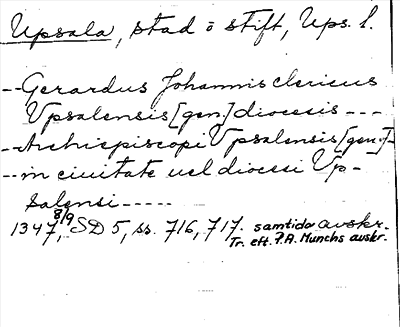 Upsala, stad o stift, Ups. l.
-- Gerardus Johannis clericus
Vpsalensis [gen.] diocesis ---
- Archiepiscopi Vpsalensis [gen.] -
-- in ciuitate uel diocesi Vp-
salensi -----
1347 8/9, SD 5, ss. 716, 717. samtida avskr.
Tr. eft. P.A. Munchs avskr.